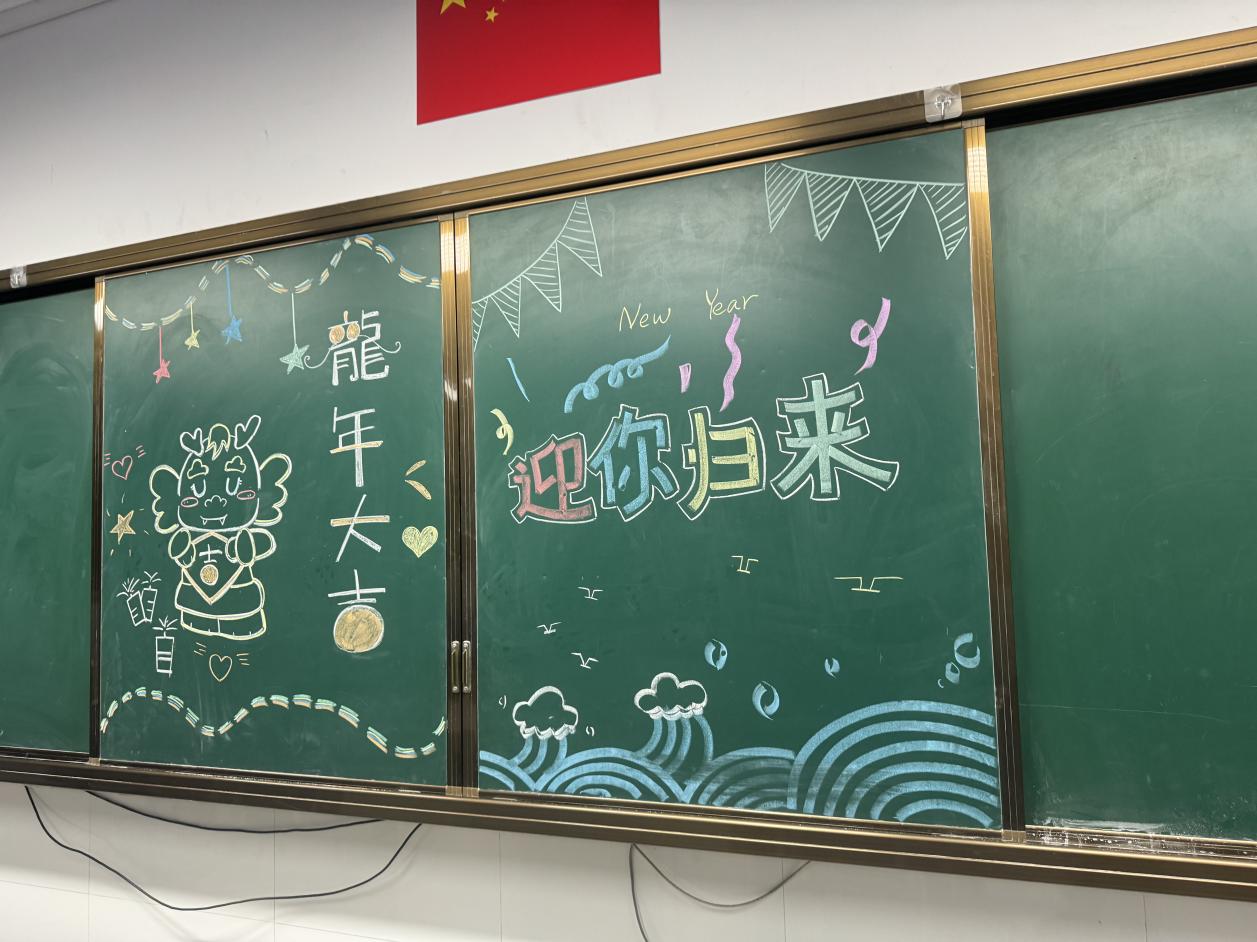 龍年大吉
吉
New Year
迎你归来